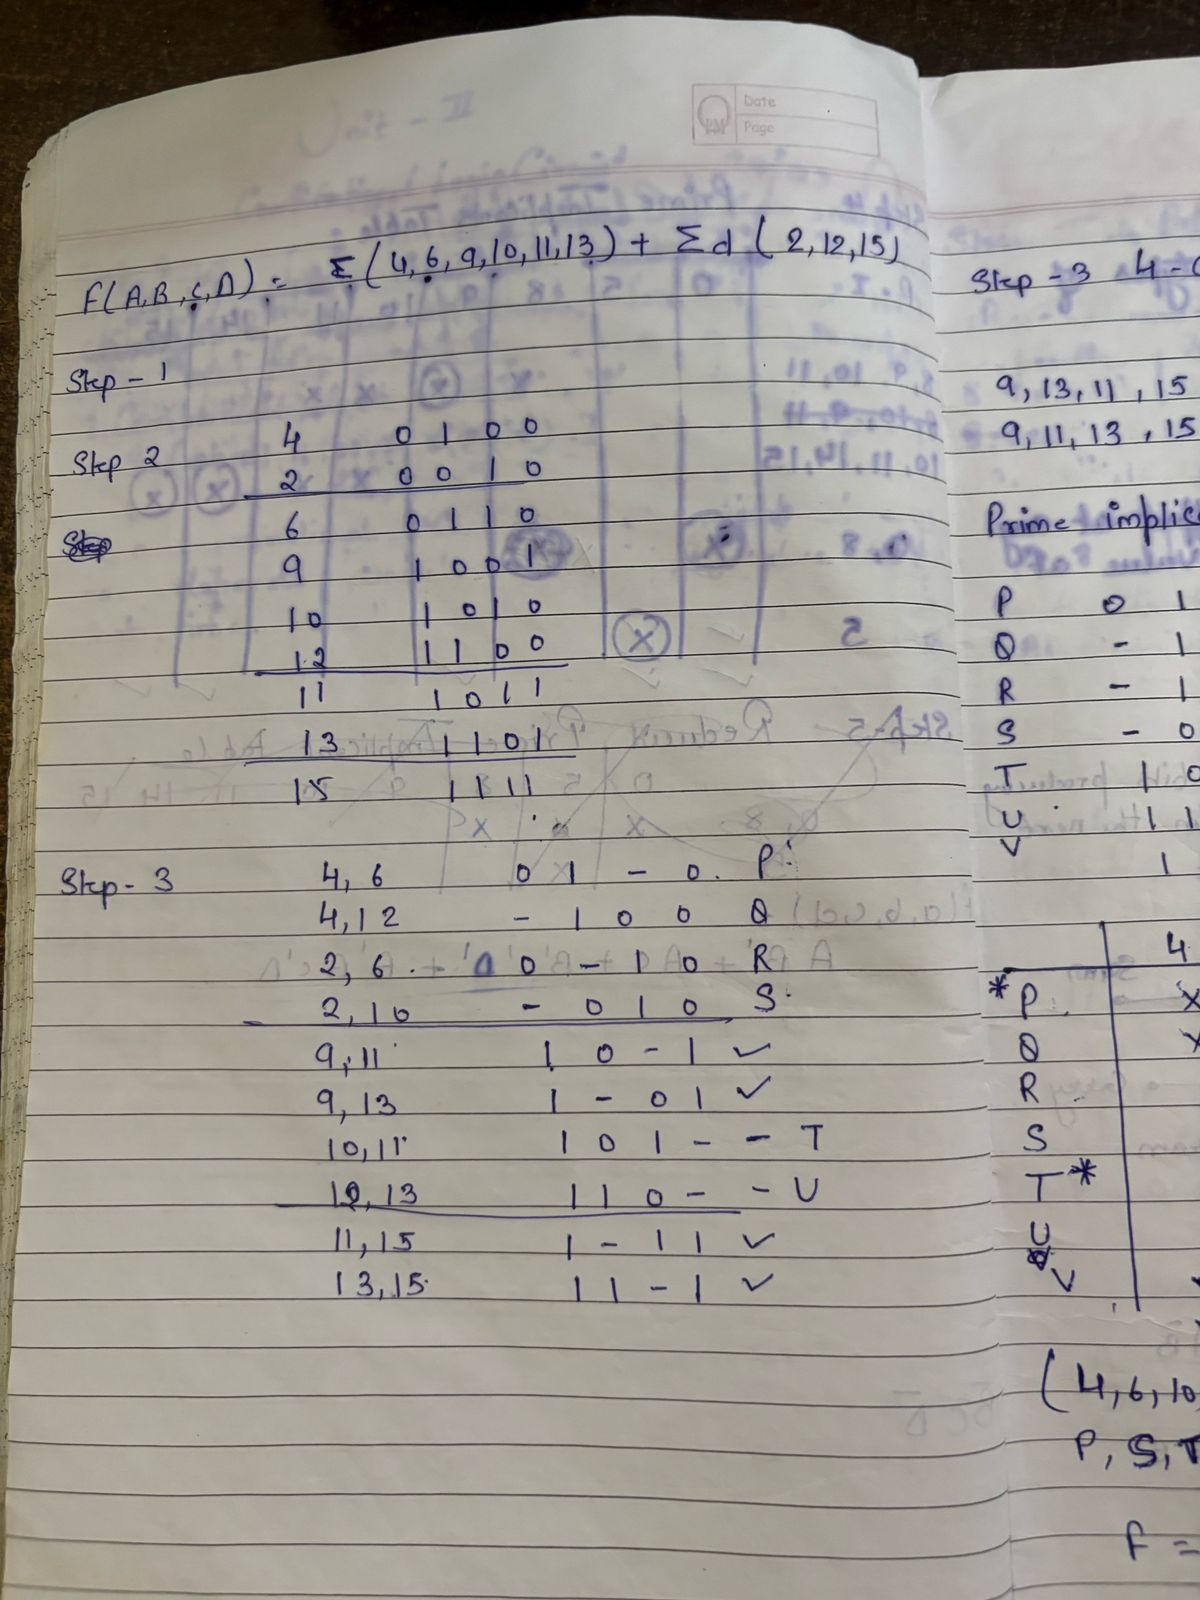 Date
Page
F(A,B,C,D) = Σ(4,6,9,10,11,13) + Σd (2,12,15)
Step - 1
Step 2 4 0 1 0 0
2 0 0 1 0
6 0 1 1 0
9 1 0 0 1
10 1 0 1 0
12 1 1 0 0
11 1 0 1 1
13 1 1 0 1
15 1 1 1 1
Step - 3 4, 6 0 1 - 0. P
4,12 - 1 0 0 Q
2, 6. 0 - 1 0 R
2,10 - 0 1 0 S
9,11 1 0 - 1 ✓
9,13 1 - 0 1 ✓
10,11 1 0 1 - - T
12,13 1 1 0 - - U
11,15 1 - 1 1 ✓
13,15 1 1 - 1 ✓
Step - 3 4 -
9,13,11,15
9,11,13,15
Prime implic
P 0 1
Q - 1
R - 1
S - 0
T 1 0
U 1 1
V 1
4
* P x
Q x
R
S
T *
U
V
(4,6,10,
P, S, T
F =